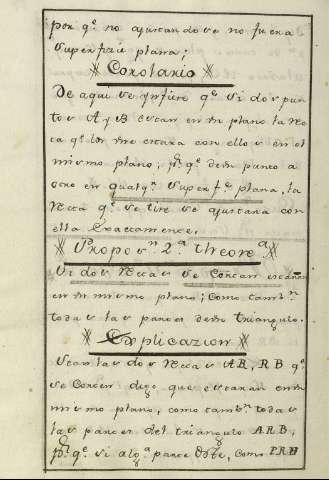 por q.e no ajustandose no fuera
superficie plana;
Corolario
De aqui se ynfiere q.e si dos pun
tos A y B estan en un plano la rec
ta q.e los une estara con ellos en el
mismo plano; p.r q.e de un punto a
otro en qualq.r superf.e plana, la
recta q.e se tire se ajustara con
ella exactamente.
Propos.n 2.a Theore.a
Si dos rectas se cortan estan
en un mismo plano; como tamb.n
todas las partes de un triangulo.
Explicazion
Sean las dos rectas AB, RB q.e
se corten digo que estaran en un
mismo plano, como tamb.n todas
las partes del triangulo ARB,
p.r q.e si alg.a parte de este, como PRH